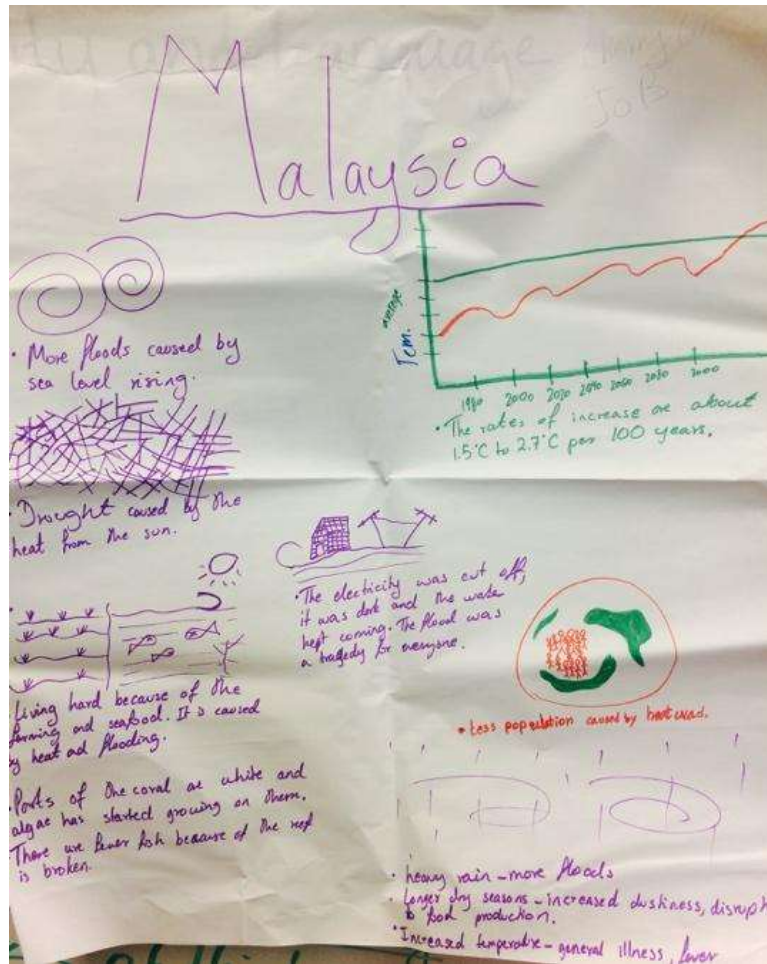 Language
JOB
Malaysia
• More floods caused by
sea level rising.
• Drought caused by the
heat from the sun.
Living hard because of the
farming and seafood. It is caused
by heat ad flooding.
• Parts of the coral are white and
algae has started growing on them.
There are fewer fish because of the reef
is broken.
average
Tem.
1980 2000 2020 2040 2060 2080
• The rates of increase are about
1.5°C to 2.7°C per 100 years.
• The electricity was cut off,
it was dark and the water
kept coming. The flood was
a tragedy for everyone.
• Less population caused by heat
• heavy rain - more floods
• Longer dry seasons - increased duskiness, disrupt
to food production.
• Increased temperature - general illness, fever